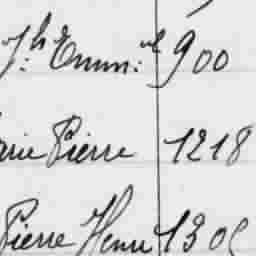 Jh Emm.el 900
arie Pierre 1218
Pierre Henri 1305